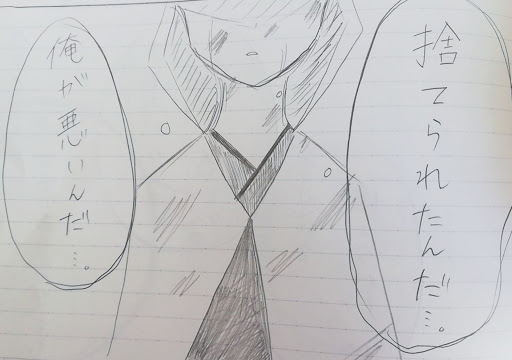 捨てられたんだ…。
俺が悪いんだ…。